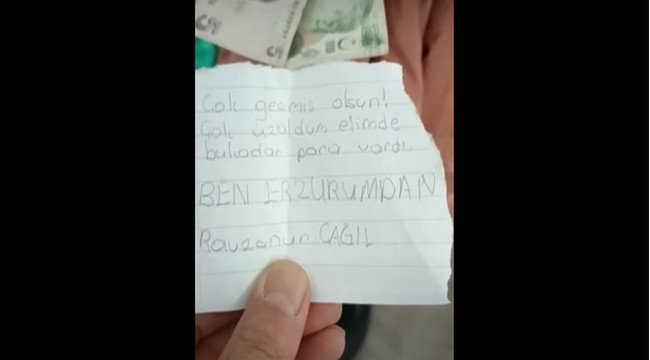 5
5
Çok geçmiş olsun!
Çok üzüldüm elimde
bukadar para vardı.
BEN ERZURUMDAN
Ravzanur ÇAĞIL